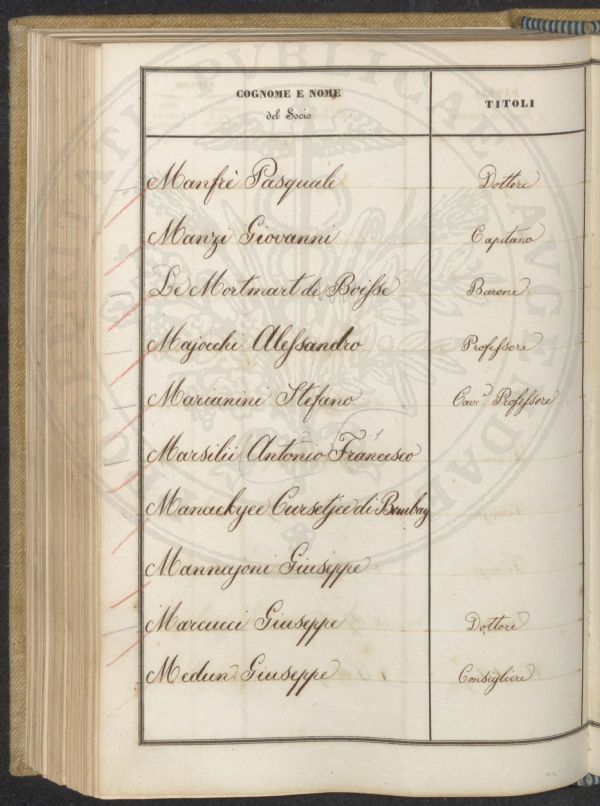 COGNOME E NOME
del Socio
TITOLI
Manfrè Pasquale Dottore
Manzi Giovanni Capitano
Le Mortmart de Boisse Barone
Majocchi Alessandro Professore
Marianini Stefano Cav.e Professore
Marsilii Antonio Francesco
Manackyee Cursetjee di Bombay
Mannajoni Giuseppe
Marcucci Giuseppe Dottore
Medun Giuseppe Consigliere
PROSPERITATI PUBLICAE AUGENDAE